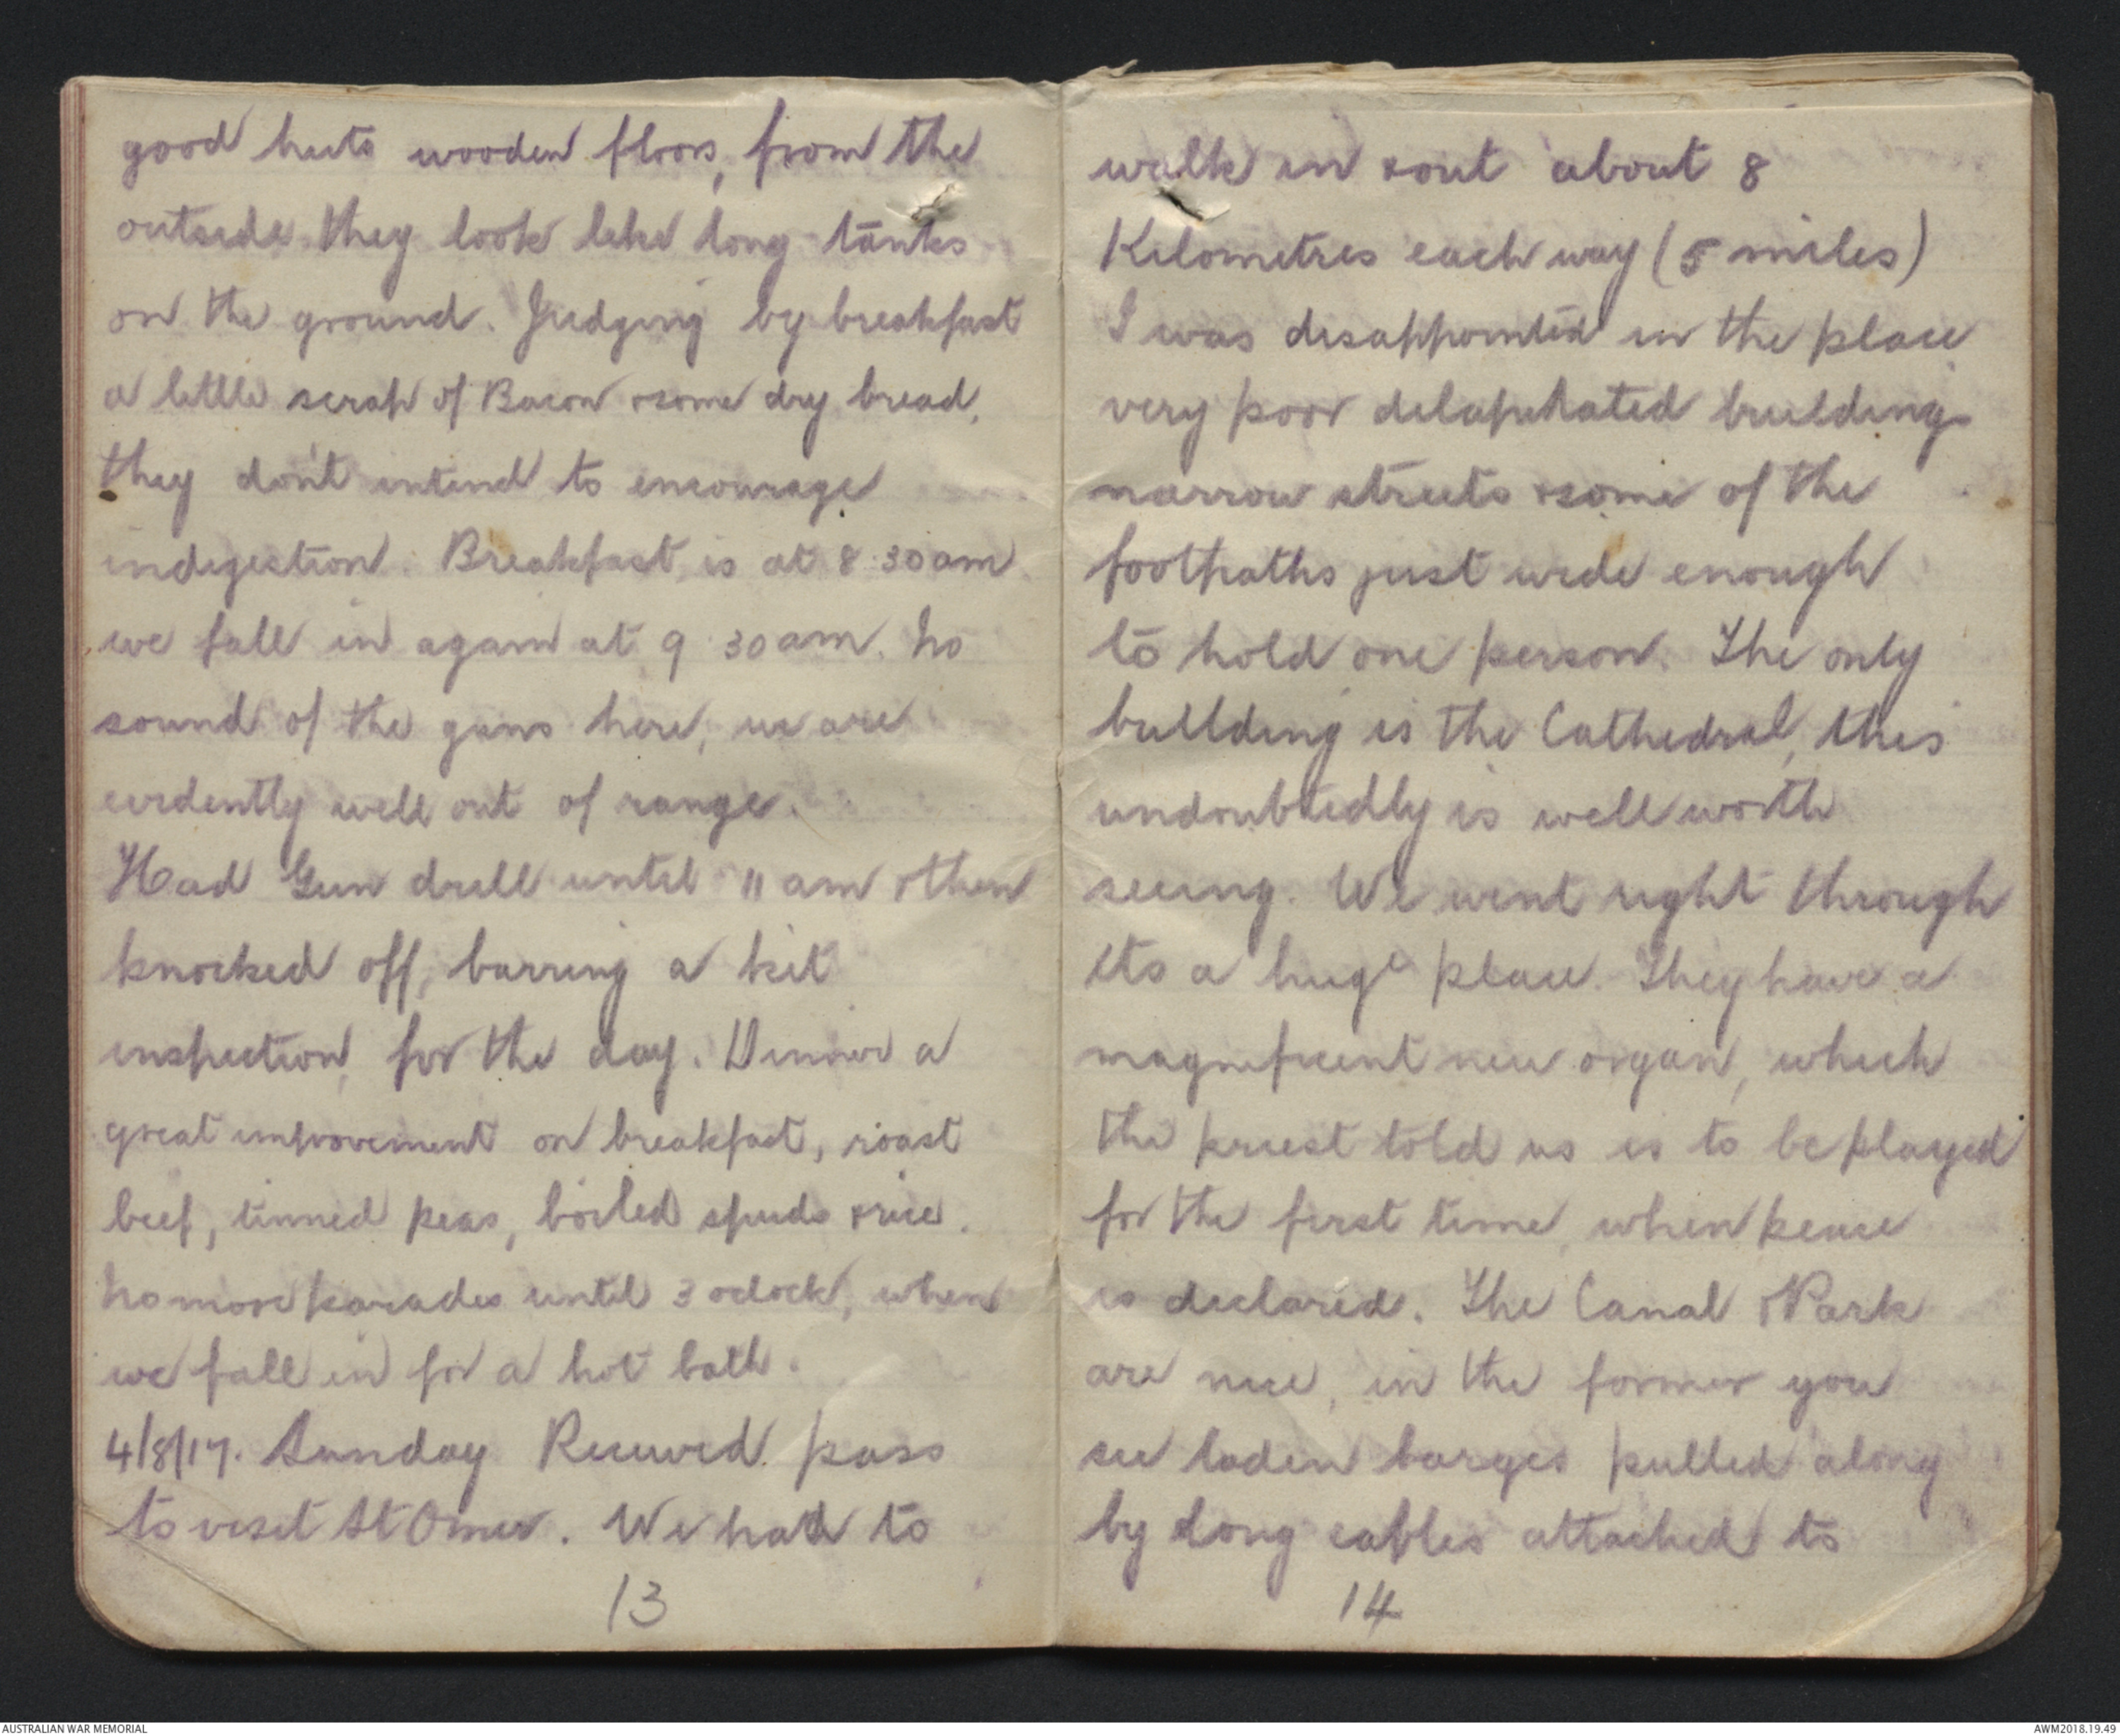 good huts wooden floors, from the
outside they look like long tanks
on the ground. Judging by breakfast
a little scrap of Bacon & some dry bread,
they don't intend to encourage
indigestion. Breakfast is at 8.30 am
we fall in again at 9 30 am. No
sound of the guns here, we are
evidently well out of range.
Had Gun drill until 11 am & then
knocked off, barring a kit
inspection, for the day. Dinner a
great improvement on breakfast, roast
beef, tinned peas, boiled spuds & rice.
No more parades until 3 oclock, when
we fall in for a hot bath.
4/8/17. Sunday Received pass
to visit St Omer. We had to
13
walk in & out about 8
Kilometres each way (5 miles)
I was disappointed in the place
very poor delapidated buildings
narrow streets & some of the
footpaths just wide enough
to hold one person. The only
building is the Cathedral, this
undoubtedly is well worth
seeing. We went right through
its a huge place. They have a
magnificent new organ, which
the priest told us is to be played
for the first time, when peace
is declared. The Canal & Park
are nice, in the former you
see laden barges pulled along
by long cables attached to
14
AUSTRALIAN WAR MEMORIAL
AWM2018.19.49